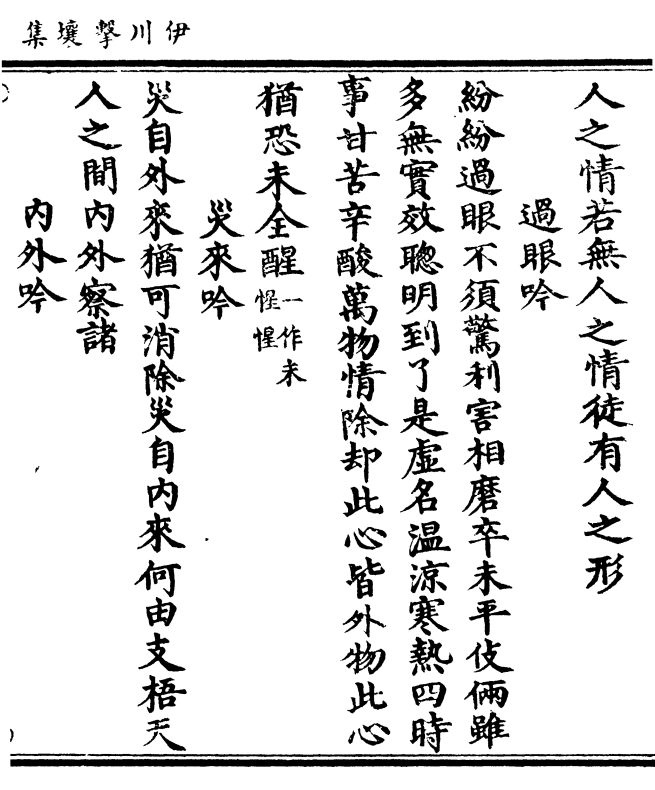 伊川擊壤集
人之情若無人之情徒有人之形
過眼吟
紛紛過眼不須驚利害相磨卒未平伎倆雖
多無實效聰明到了是虛名温凉寒熱四時
事甘苦辛酸萬物情除却此心皆外物此心
猶恐未全醒一作未惺惺
災來吟
災自外來猶可消除災自内來何由支梧天
人之間内外察諸
内外吟